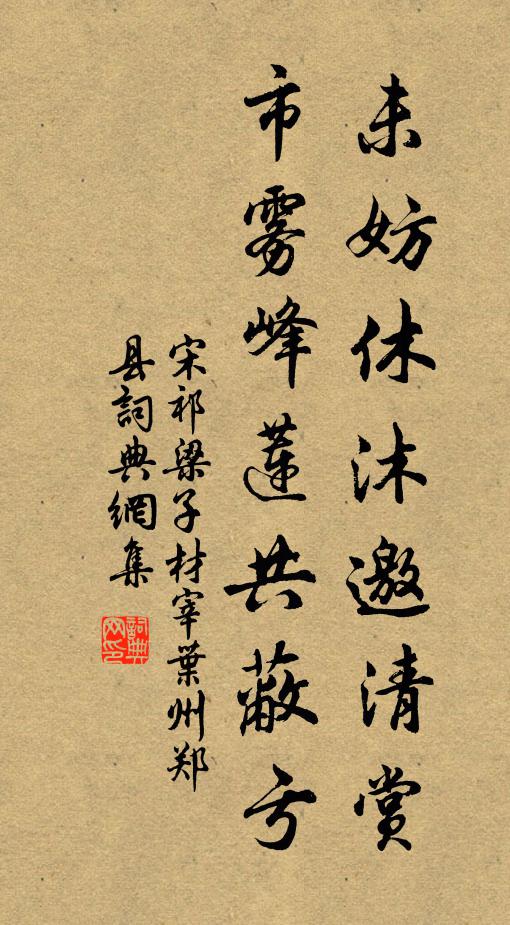 未妨休沐邀清赏
市雾峰莲共蔽亏
宋祁梁子材宰葉州郑
县詞典網集
詞典
网印